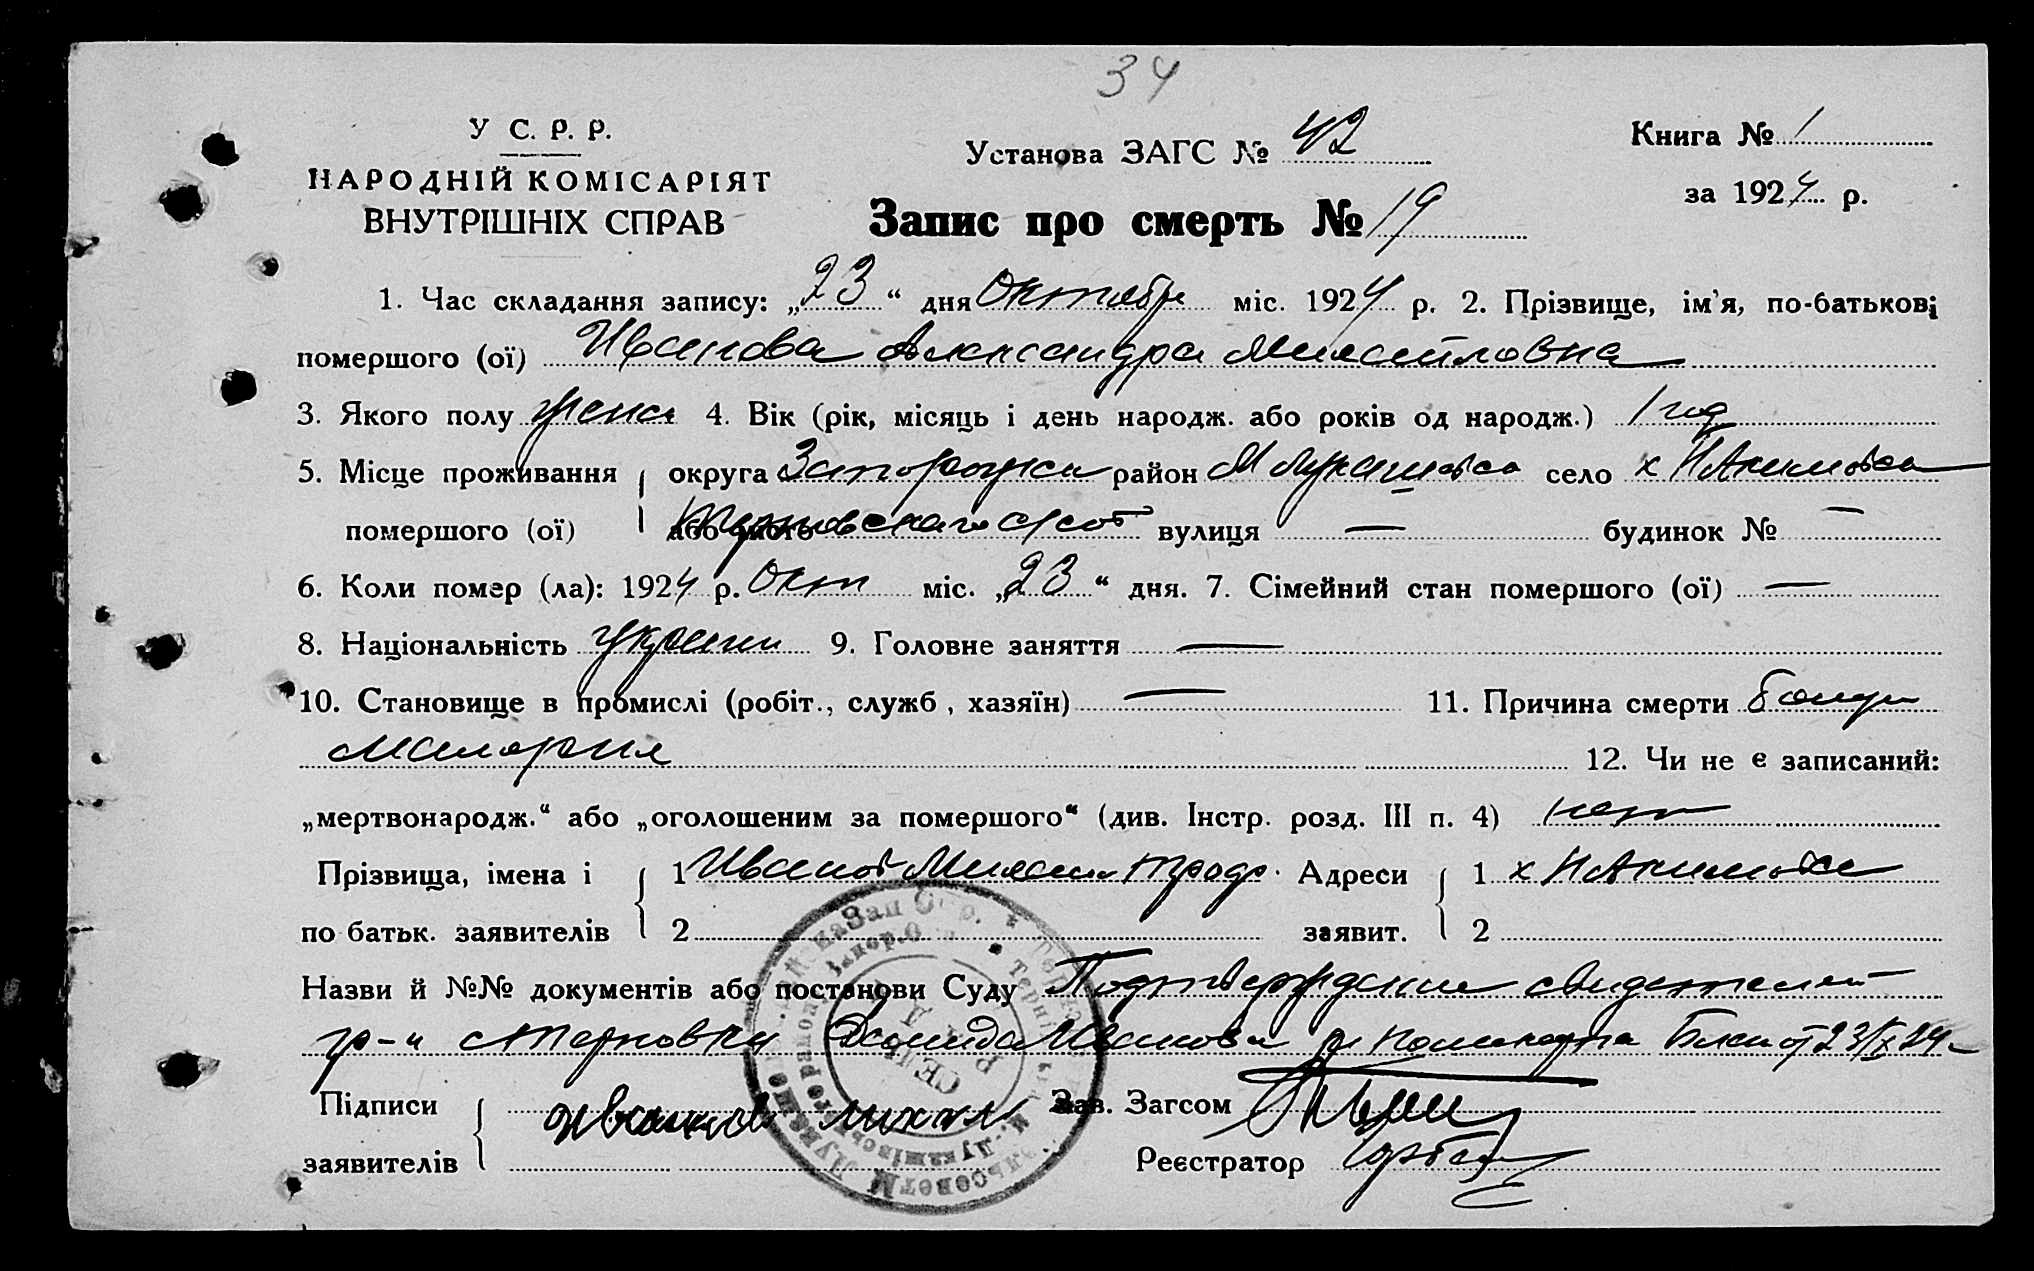 34
У С. Р. Р.
НАРОДНІЙ КОМІСАРІЯТ
ВНУТРІШНІХ СПРАВ
Установа ЗАГС № 42
Книга № 1
за 1924 р.
Запис про смерть № 19
1. Час складання запису: „23“ дня Октября міс. 1924 р. 2. Прізвище, ім'я, по-батькові
помершого (ої) Иванова Александра Михайловна
3. Якого полу женс 4. Вік (рік, місяць і день народж. або років од народж.) 1 год
5. Місце проживання округа Запорожск район М Лукашовск село х Н Акимовка
помершого (ої) або місто Терновскаго с/сов вулиця — будинок № —
6. Коли помер (ла): 1924 р. Окт міс. „23“ дня. 7. Сімейний стан помершого (ої) —
8. Національність украин 9. Головне заняття —
10. Становище в промислі (робіт., служб, хазяїн) — 11. Причина смерти
малярия 12. Чи не є записаний:
„мертвонародж.“ або „оголошеним за помершого“ (див. Інстр. розд. III п. 4) нет
Прізвища, імена і 1 Иванов Михаил Адреси 1 х Н Акимовка
по батьк. заявителів 2 заявит. 2
Назви й №№ документів або постанови Суду Подтверждение свидетелей
гр-н с Терновки Иванова и от 23/X 24
Підписи Иванов Михаил Зав. Загсом
заявителів Реєстратор